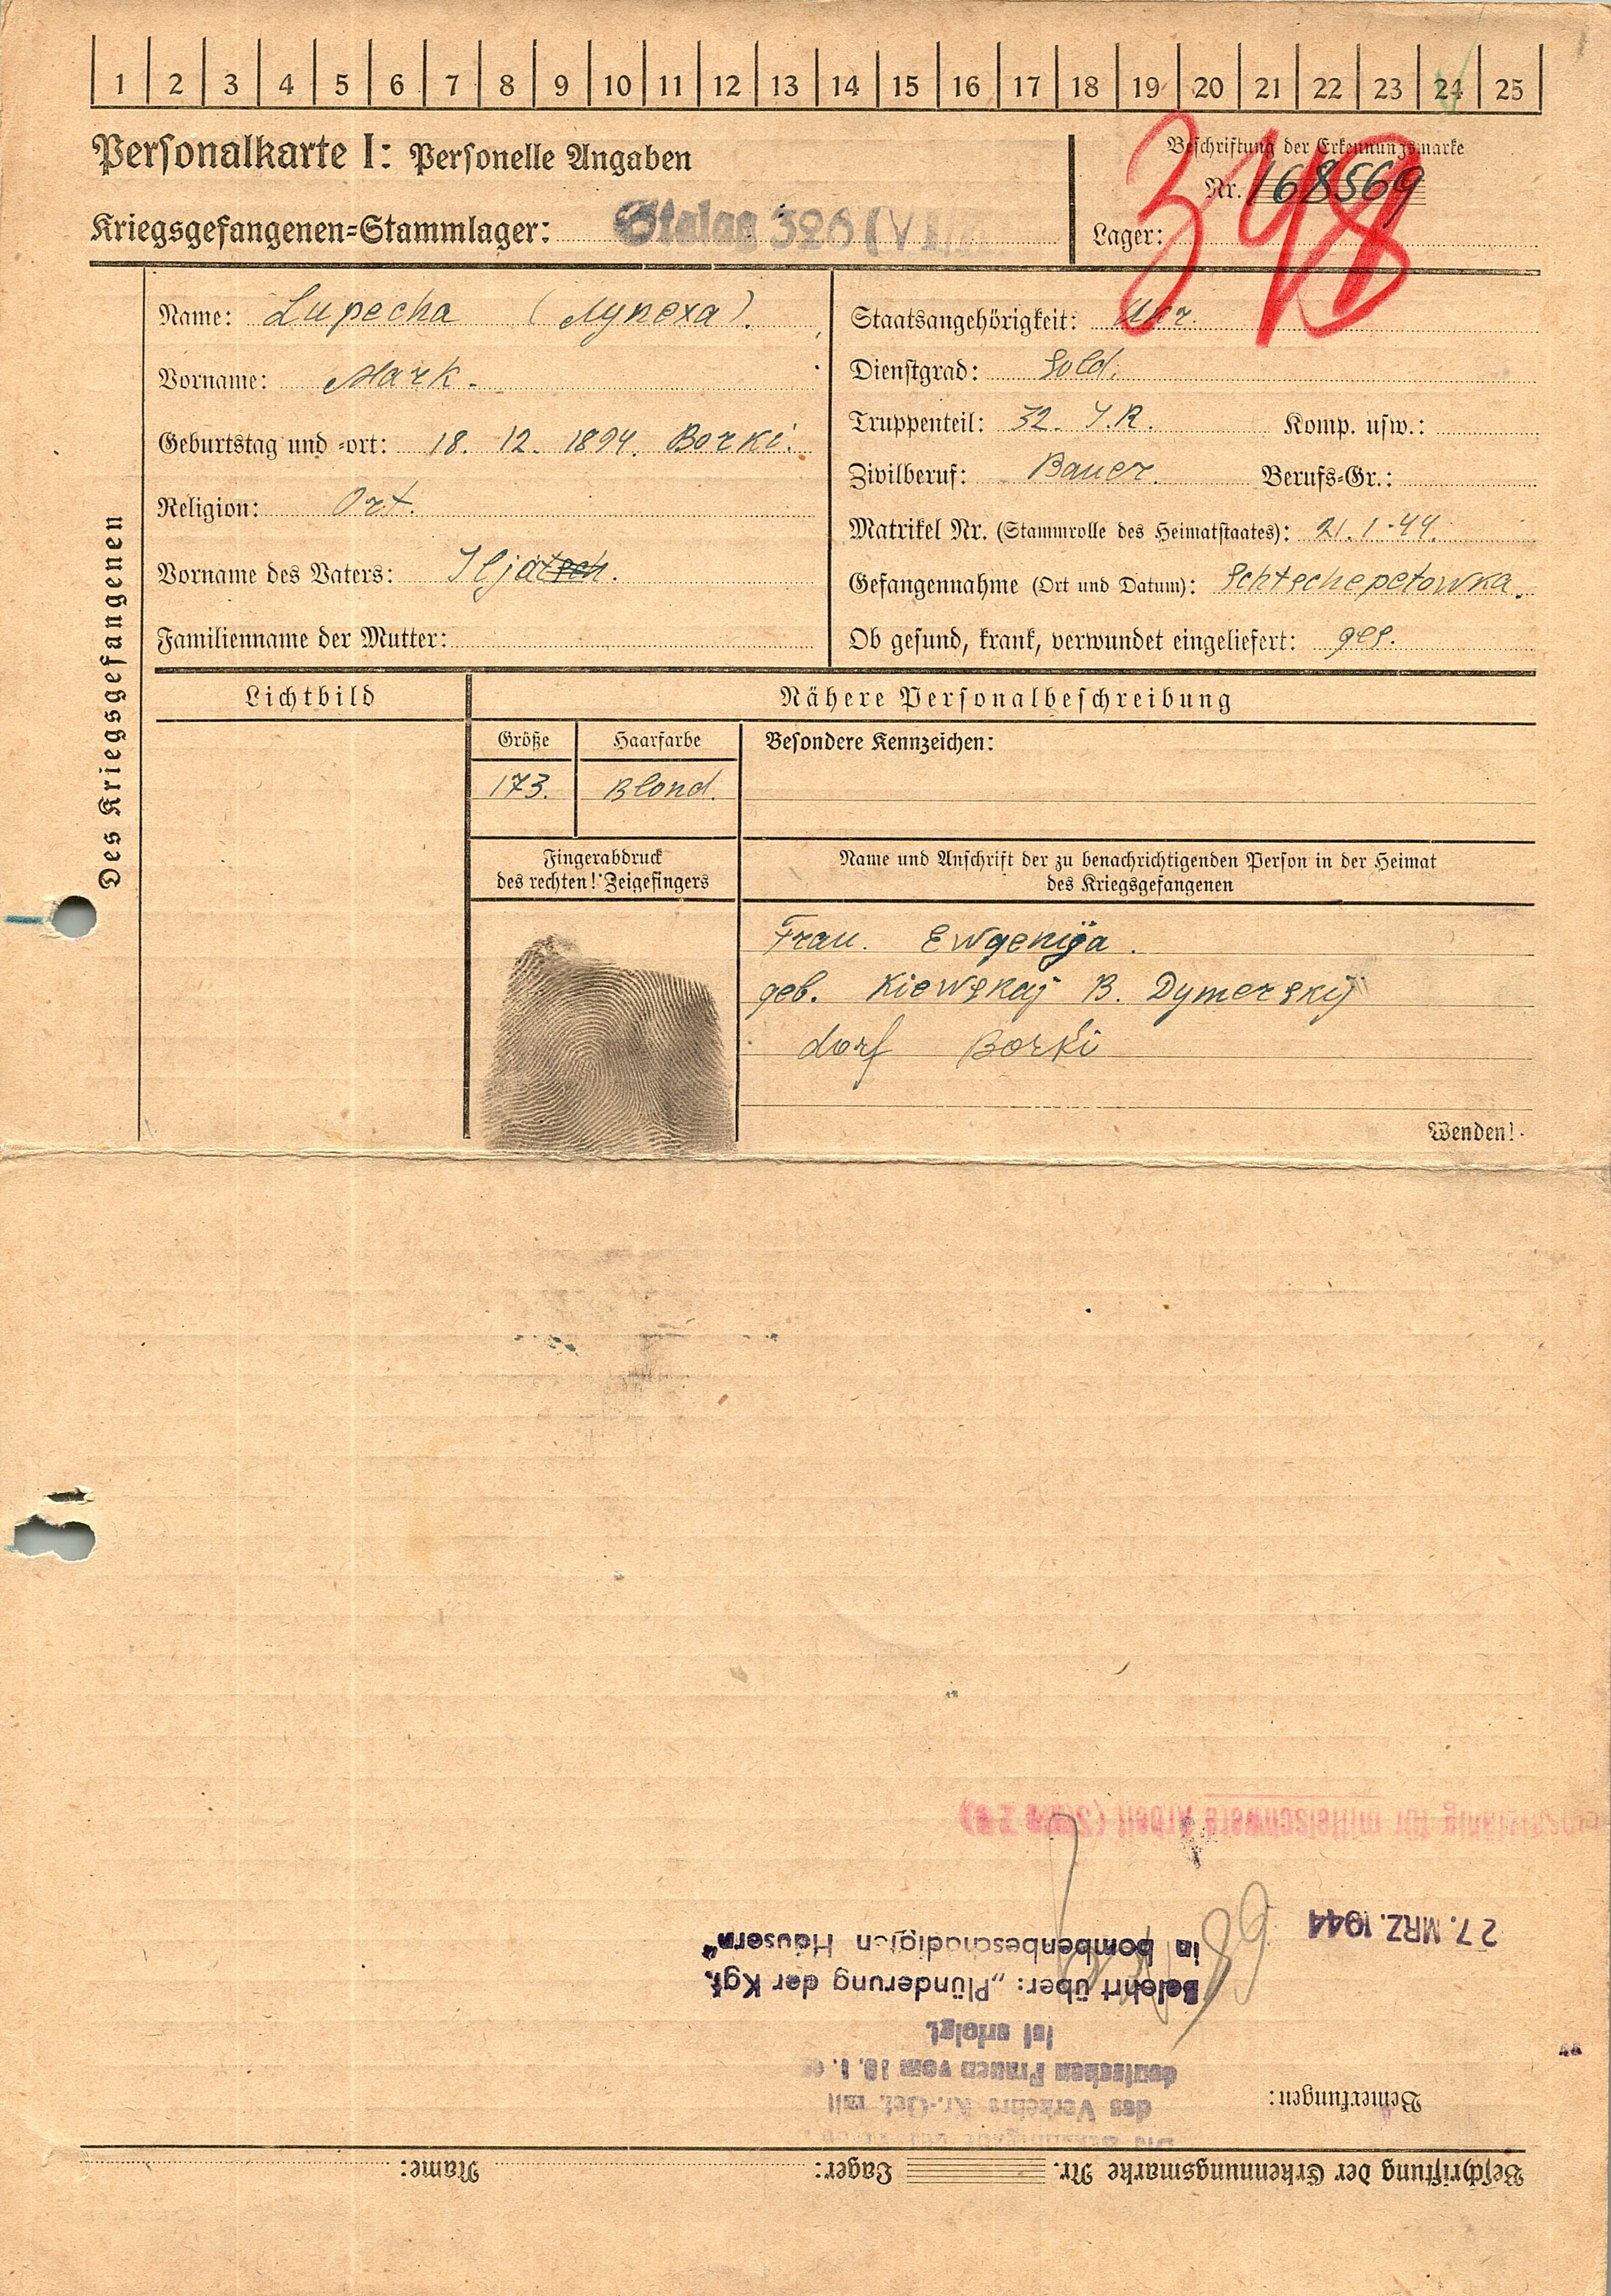 1 2 3 4 5 6 7 8 9 10 11 12 13 14 15 16 17 18 19 20 21 22 23 24 25
Personalkarte I: Personelle Angaben
Beschriftung der Erkennungsmarke
Nr. 168569
Kriegsgefangenen=Stammlager: Stalag 326 (VI
Lager:
348
Des Kriegsgefangenen
Name: Lupecha (Лупеха).
Vorname: Mark.
Geburtstag und =ort: 18. 12. 1894. Borki.
Religion: Ort.
Vorname des Vaters: Iljatsch.
Familienname der Mutter:
Staatsangehörigkeit: Ukr.
Dienstgrad: Sold.
Truppenteil: 32. I.R. Komp. usw.:
Zivilberuf: Bauer. Berufs=Gr.:
Matrikel Nr. (Stammrolle des Heimatstaates): 21.1.44.
Gefangennahme (Ort und Datum): Schtschepetowka.
Ob gesund, krank, verwundet eingeliefert: ges.
Lichtbild
Nähere Personalbeschreibung
Größe Haarfarbe Besondere Kennzeichen:
173. Blond.
Fingerabdruck
des rechten! Zeigefingers
Name und Anschrift der zu benachrichtigenden Person in der Heimat
des Kriegsgefangenen
Frau. Ewgenija.
geb. Kiewskaj B. Dymerskij
dorf Borki
Wenden!
Beschriftung der Erkennungsmarke Nr. Lager: Name:
Bemerkungen:
des Verkehrs Kr.-Gef. mit
deutschen Frauen vom 10. 1.
ist erfolgt
Belehrt über: „Plünderung der Kgf.
in bombenbeschädigten Häusern"
27. MRZ. 1944
für mittelschwere Arbeit